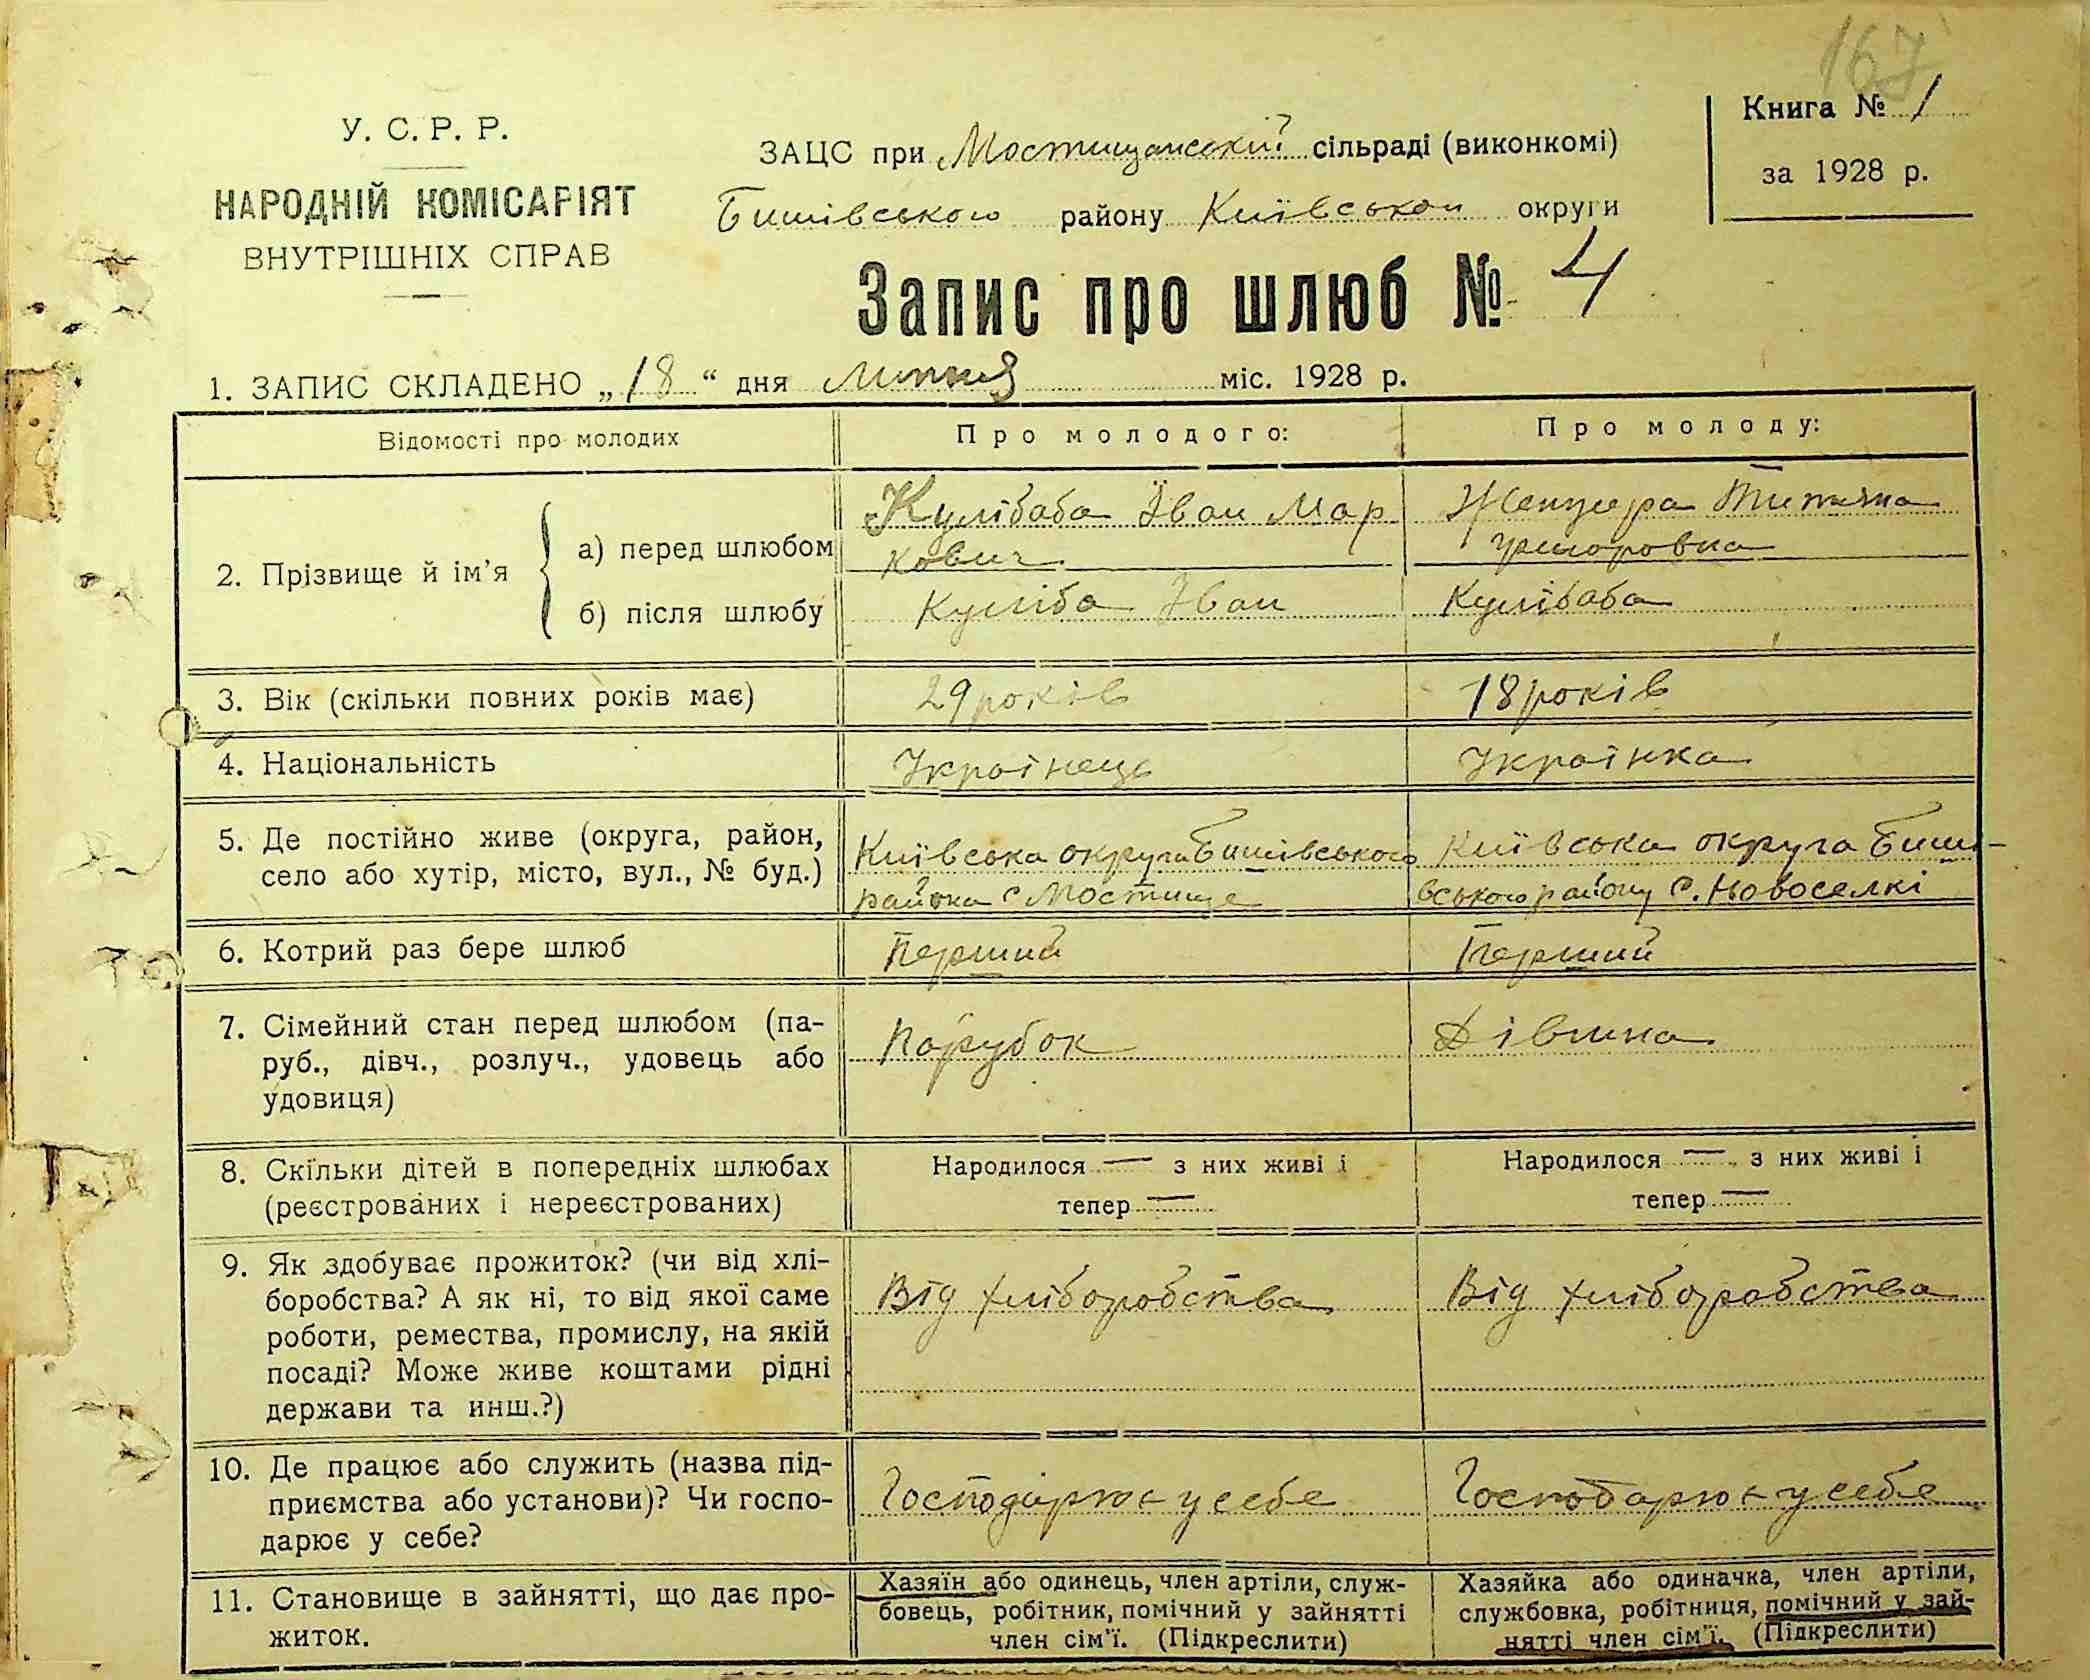 167
У. С. Р. Р.
НАРОДНІЙ КОМІСАРІЯТ
ВНУТРІШНІХ СПРАВ
ЗАЦС при Мостищанській сільраді (виконкомі)
Бишівського району Київської округи
Книга № 1
за 1928 р.
Запис про шлюб № 4
1. ЗАПИС СКЛАДЕНО „18“ дня липня міс. 1928 р.
Відомості про молодих
Про молодого:
Про молоду:
2. Прізвище й ім'я
а) перед шлюбом
Кулібаба Іван Мар
кович
Титяна
б) після шлюбу
Куліба Іван
Кулібаба
3. Вік (скільки повних років має)
29 років
18 років
4. Національність
Українець
Українка
5. Де постійно живе (округа, район,
село або хутір, місто, вул., № буд.)
Київська округа Бишівського
района с Мостище
Київська округа Биші-
вського району с. Новоселкі
6. Котрий раз бере шлюб
Перший
Перший
7. Сімейний стан перед шлюбом (па-
руб., дівч., розлуч., удовець або
удовиця)
Парубок
Дівчина
8. Скільки дітей в попередніх шлюбах
(реєстрованих і нереєстрованих)
Народилося — з них живі і
тепер —
Народилося — з них живі і
тепер —
9. Як здобуває прожиток? (чи від хлі-
боробства? А як ні, то від якої саме
роботи, ремества, промислу, на якій
посаді? Може живе коштами рідні
держави та инш.?)
Від хліборобства
Від хліборобства
10. Де працює або служить (назва під-
приємства або установи)? Чи госпо-
дарює у себе?
Господарює у себе
Господарює у себе
11. Становище в зайнятті, що дає про-
житок.
Хазяїн або одинець, член артіли, служ-
бовець, робітник, помічний у зайнятті
член сім'ї. (Підкреслити)
Хазяйка або одиначка, член артіли,
службовка, робітниця, помічний у зай-
нятті член сім'ї. (Підкреслити)